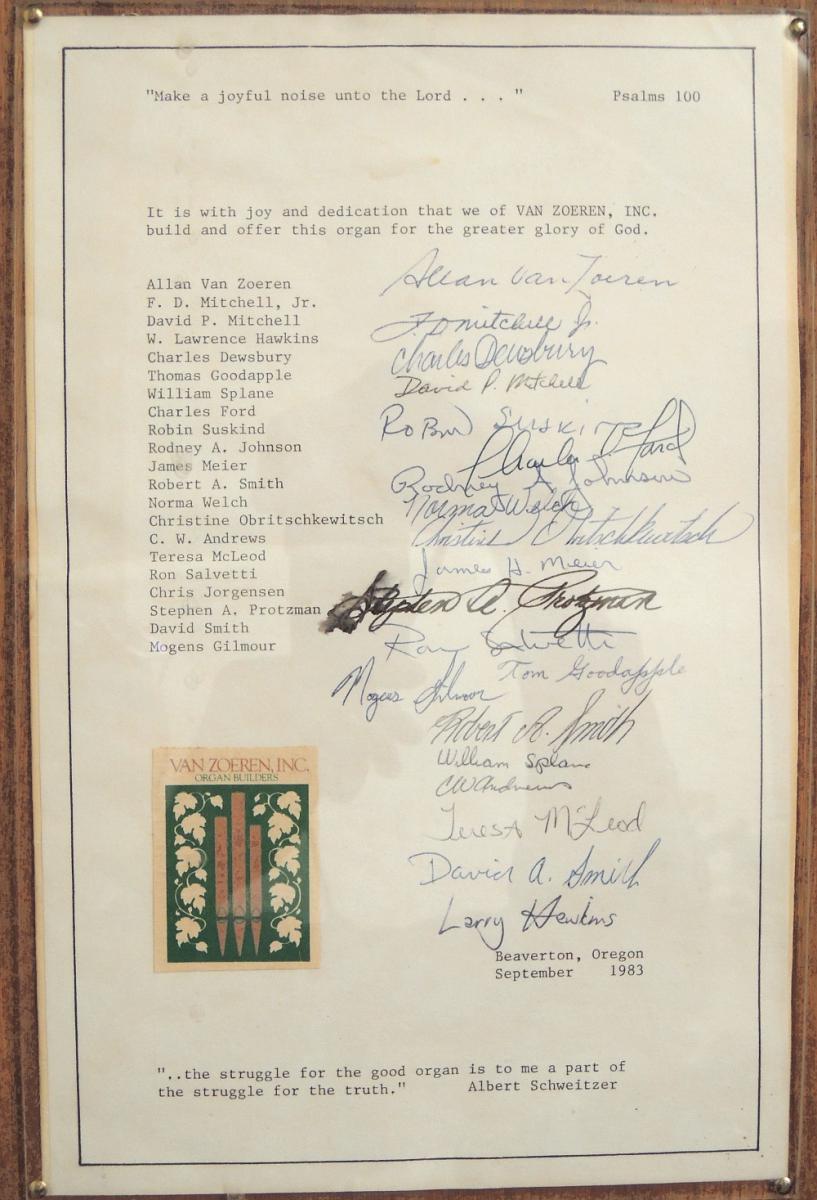 "Make a joyful noise unto the Lord . . . " Psalms 100
It is with joy and dedication that we of VAN ZOEREN, INC.
build and offer this organ for the greater glory of God.
Allan Van Zoeren
F. D. Mitchell, Jr.
David P. Mitchell
W. Lawrence Hawkins
Charles Dewsbury
Thomas Goodapple
William Splane
Charles Ford
Robin Suskind
Rodney A. Johnson
James Meier
Robert A. Smith
Norma Welch
Christine Obritschkewitsch
C. W. Andrews
Teresa McLeod
Ron Salvetti
Chris Jorgensen
Stephen A. Protzman
David Smith
Mogens Gilmour
Allan Van Zoeren
F. D. Mitchell Jr.
Charles Dewsbury
David P. Mitchell
Robin Suskind
Charles Ford
Rodney A Johnson
Norma Welch
Christine Obritschkewitsch
James H. Meier
Stephen A. Protzman
Ron Salvetti
Tom Goodapple
Mogens Gilmour
Robert A. Smith
William Splane
CW Andrews
Teresa McLeod
David A. Smith
Larry Hawkins
VAN ZOEREN, INC.
ORGAN BUILDERS
Beaverton, Oregon
September 1983
"..the struggle for the good organ is to me a part of
the struggle for the truth." Albert Schweitzer